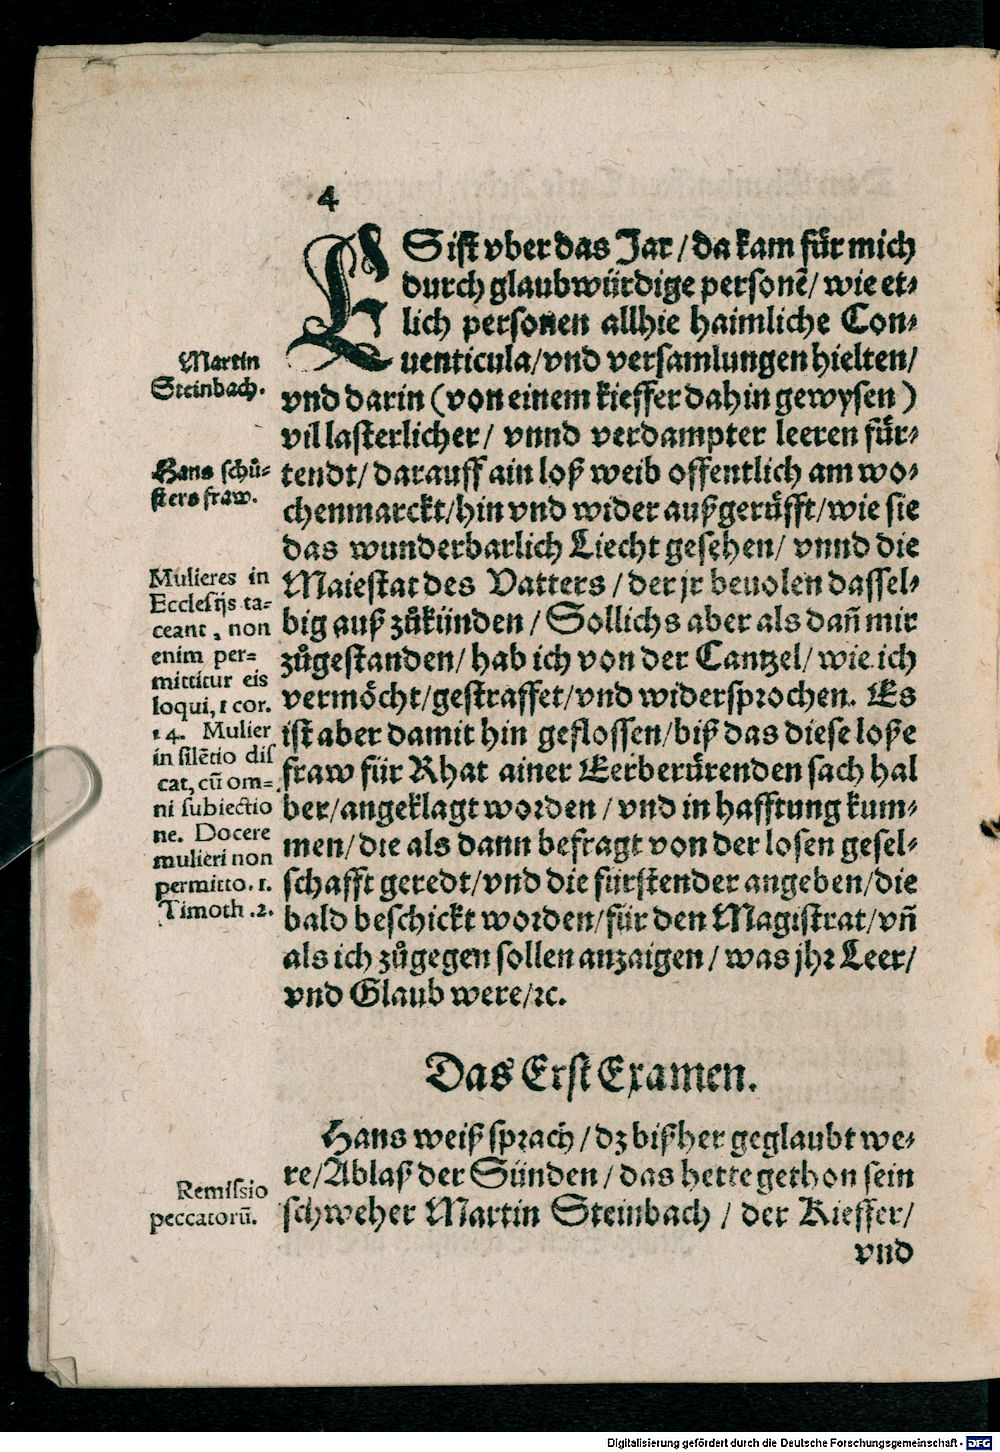 4
ES ist vber das Jar / da kam für mich
durch glaubwürdige personē / wie et⸗
lich personen allhie haimliche Con⸗
uenticula / vnd versamlungen hielten /
vnd darin (von einem kieffer dahin gewysen)
vil lasterlicher / vnnd verdampter leeren für⸗
tendt / darauff ain loß weib offentlich am wo⸗
chenmarckt / hin vnd wider außgerüfft / wie sie
das wunderbarlich Liecht gesehen / vnnd die
Maiestat des Vatters / der jr beuolen dassel⸗
big auß zůkünden / Sollichs aber als dañ mir
zůgestanden / hab ich von der Cantzel / wie ich
vermöcht / gestraffet / vnd widersprochen. Es
ist aber damit hin geflossen / biß das diese loße
fraw für Rhat ainer Eerberürenden sach hal
ber / angeklagt worden / vnd in hafftung kum⸗
men / die als dann befragt von der losen gesel⸗
schafft geredt / vnd die fürstender angeben / die
bald beschickt worden / für den Magistrat / vñ
als ich zůgegen sollen anzaigen / was jhr Leer /
vnd Glaub were / ꝛc.
Martin
Steinbach.
Hans schů⸗
sters fraw.
Mulieres in
Ecclesijs ta⸗
ceant, non
enim per⸗
mittitur eis
loqui, 1 cor.
14. Mulier
in silētio dis
cat, cū om⸗
ni subiectio
ne. Docere
mulieri non
permitto. 1.
Timoth. 2.
Das Erst Examen.
Hans weiß sprach / dz bißher geglaubt we⸗
re / Ablaß der Sünden / das hette gethon sein
schweher Martin Steinbach / der Kieffer /
vnd
Remissio
peccatorū.
Digitalisierung gefördert durch die Deutsche Forschungsgemeinschaft - DFG